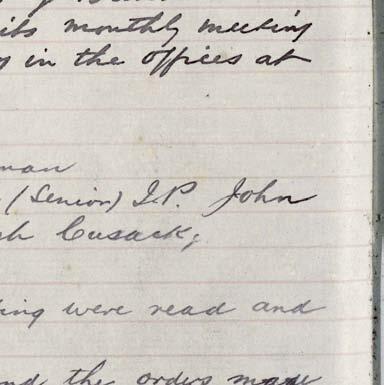 its monthly meeting
in the offices at
(Senior) J.P. John
Cusack,
were read and
the orders made